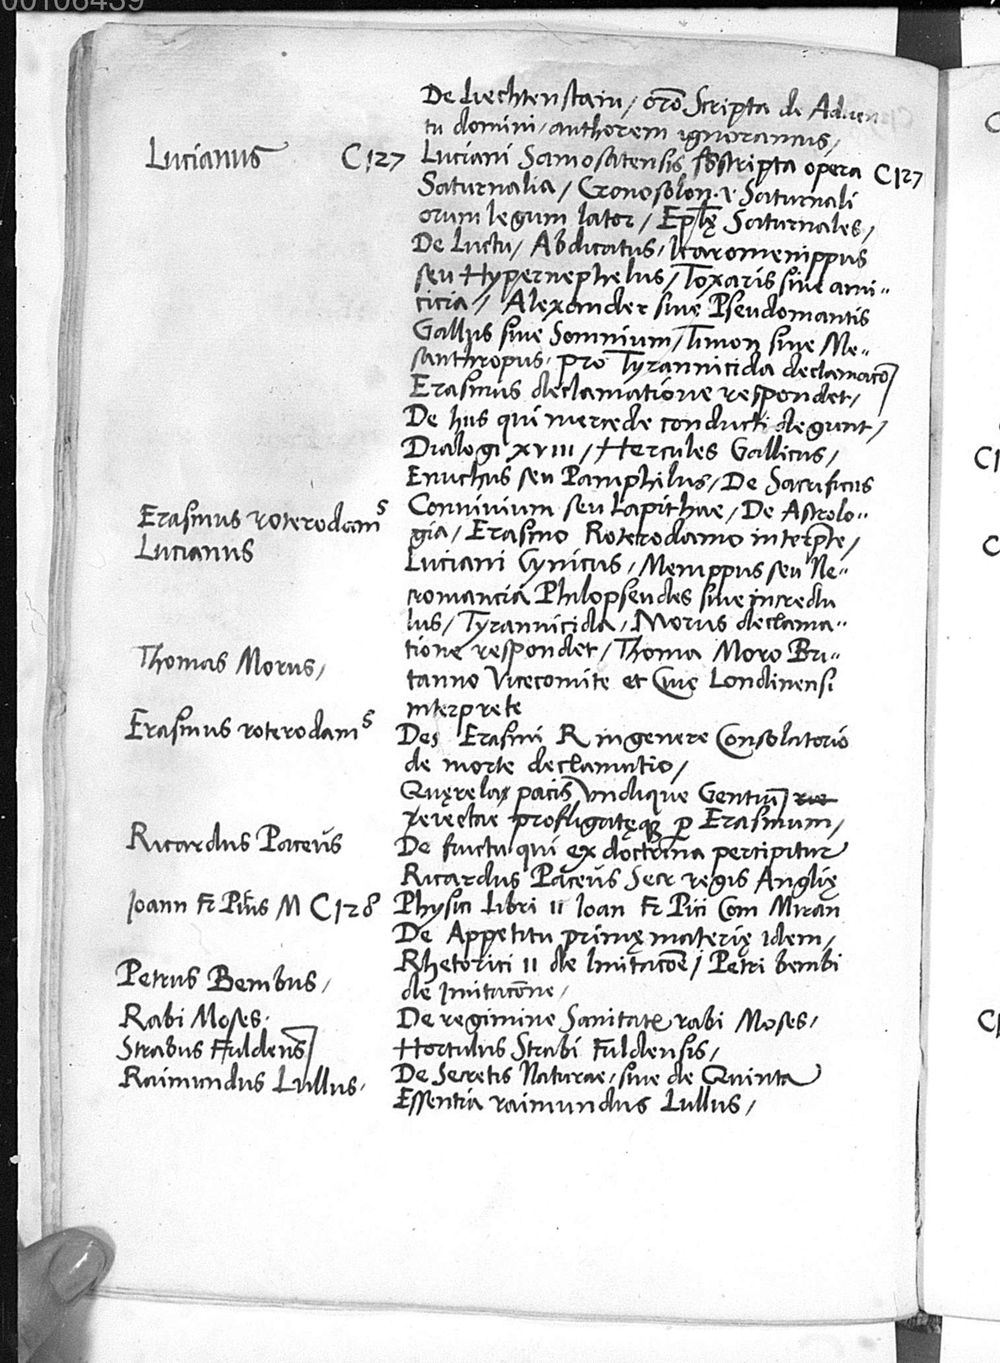 00106439
De Liechtenstain / orõ Scripta de Aduen
tu domini / authorem ignoramus /
Lucianus C127 Luciani Samosatensis sbscripta opera C127
Saturnalia / Cronosolon . i . Saturnali
orum legum lator / Eplę Saturnales /
De Luctu / Abdicatus / Icaromenippus
seu Hypernephelus / Toxaris siue ami-
cicia / Alexander siue Pseudomantis
Gallus siue Somnium / Timon siue Me-
santhropus . Pro Tyrannicida declamacõ
Erasmus declamatione respondet /
De hiis qui mercede conducti degunt /
Dialogi xviii / Hercules Gallicus /
Enuchus seu Pamphilus / De Sacrificiis
Erasmus roterodams Conuiuium seu Lapithae / De Astrolo-
gia / Erasmo Roterodamo interpte /
Lucianus Luciani Cynicus / Menippus seu Ne-
cromancia Philopseudes siue incredu
lus / Tyrannicida / Morus declama-
Thomas Morus / tione respondet / Thoma Moro Bri-
tanno Vicecomite et Ciue Londinensi
interprete
Erasmus roterodams Des Erasmi R in genere Consolatorio
de morte declamatio /
Quęrela pacis vndique Gentiũ
reiectae profligatęq p Erasmum /
Ricardus Paceus De fructu qui ex doctrina percipitur
Ricardus Paceus Secr regis Anglię
Ioann Fr Picus M C128 Physici Libri II Ioan Fr Pici Com Miran
De Appetitu primę materię idem /
Petrus Bembus / Rhetorici II de Imitacõe / Petri bembi
de Imitacõne /
Rabi Moses . De regimine Sanitatis rabi Moses /
Strabus Fuldens Hortulus Strabi Fuldensis /
Raimundus Lullus . De Secretis Naturae / siue de Quinta
Essentia raimundus Lullus /